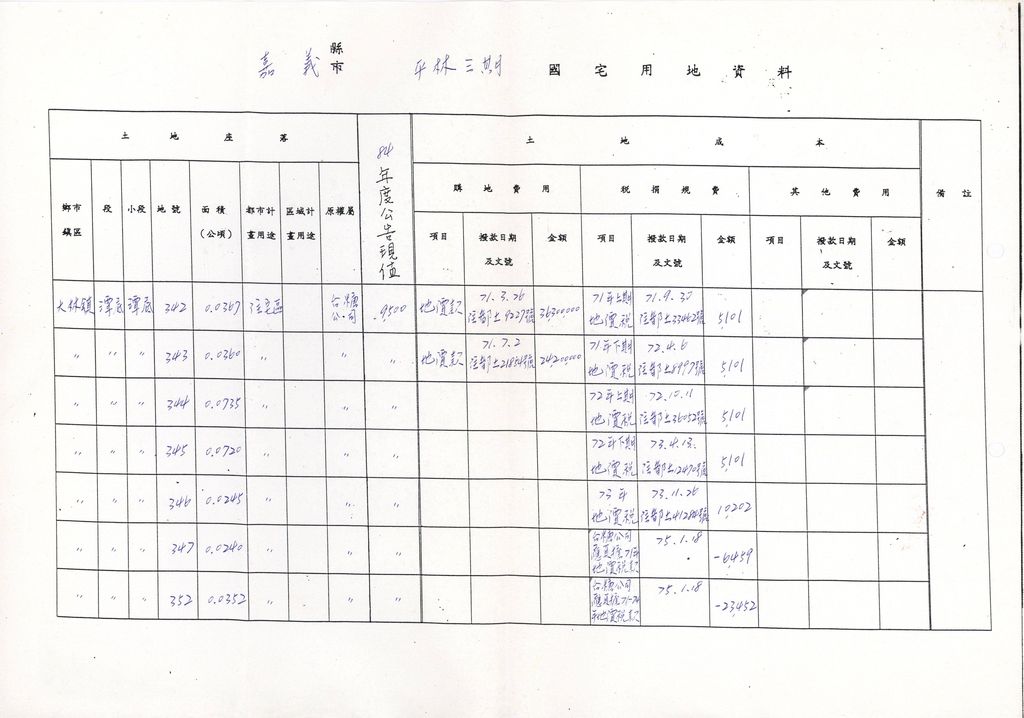 嘉義 縣市 平林三期 國宅用地資料
土地座落 84年度公告現值 土地成本 備註
購地費用 稅捐規費 其他費用
鄉市鎮區 段 小段 地號 面積（公頃） 都市計畫用途 區域計畫用途 原權屬 項目 撥款日期及文號 金額 項目 撥款日期及文號 金額 項目 撥款日期及文號 金額
大林鎮 潭底 潭底 342 0.0367 住宅區 台糖公司 9500 地價款 71.3.26 住都土9227號 36300000 71年上期地價稅 71.9.30 住都土33462號 5101
〃 〃 〃 343 0.0360 〃 〃 〃 地價款 71.7.2 住都土21854號 24200000 71年下期地價稅 72.4.6 住都土8997號 5101
〃 〃 〃 344 0.0735 〃 〃 〃 72年上期地價稅 72.10.11 住都土36052號 5101
〃 〃 〃 345 0.0720 〃 〃 〃 72年下期地價稅 73.4.13. 住都土12470號 5101
〃 〃 〃 346 0.0245 〃 〃 〃 73年地價稅 73.11.26 住都土41280號 10202
〃 〃 〃 347 0.0240 〃 〃 〃 台糖公司應負擔71年地價稅款 75.1.18 -6459
〃 〃 〃 352 0.0352 〃 〃 台糖公司應負擔71-74年地價稅款 75.1.18 -23452